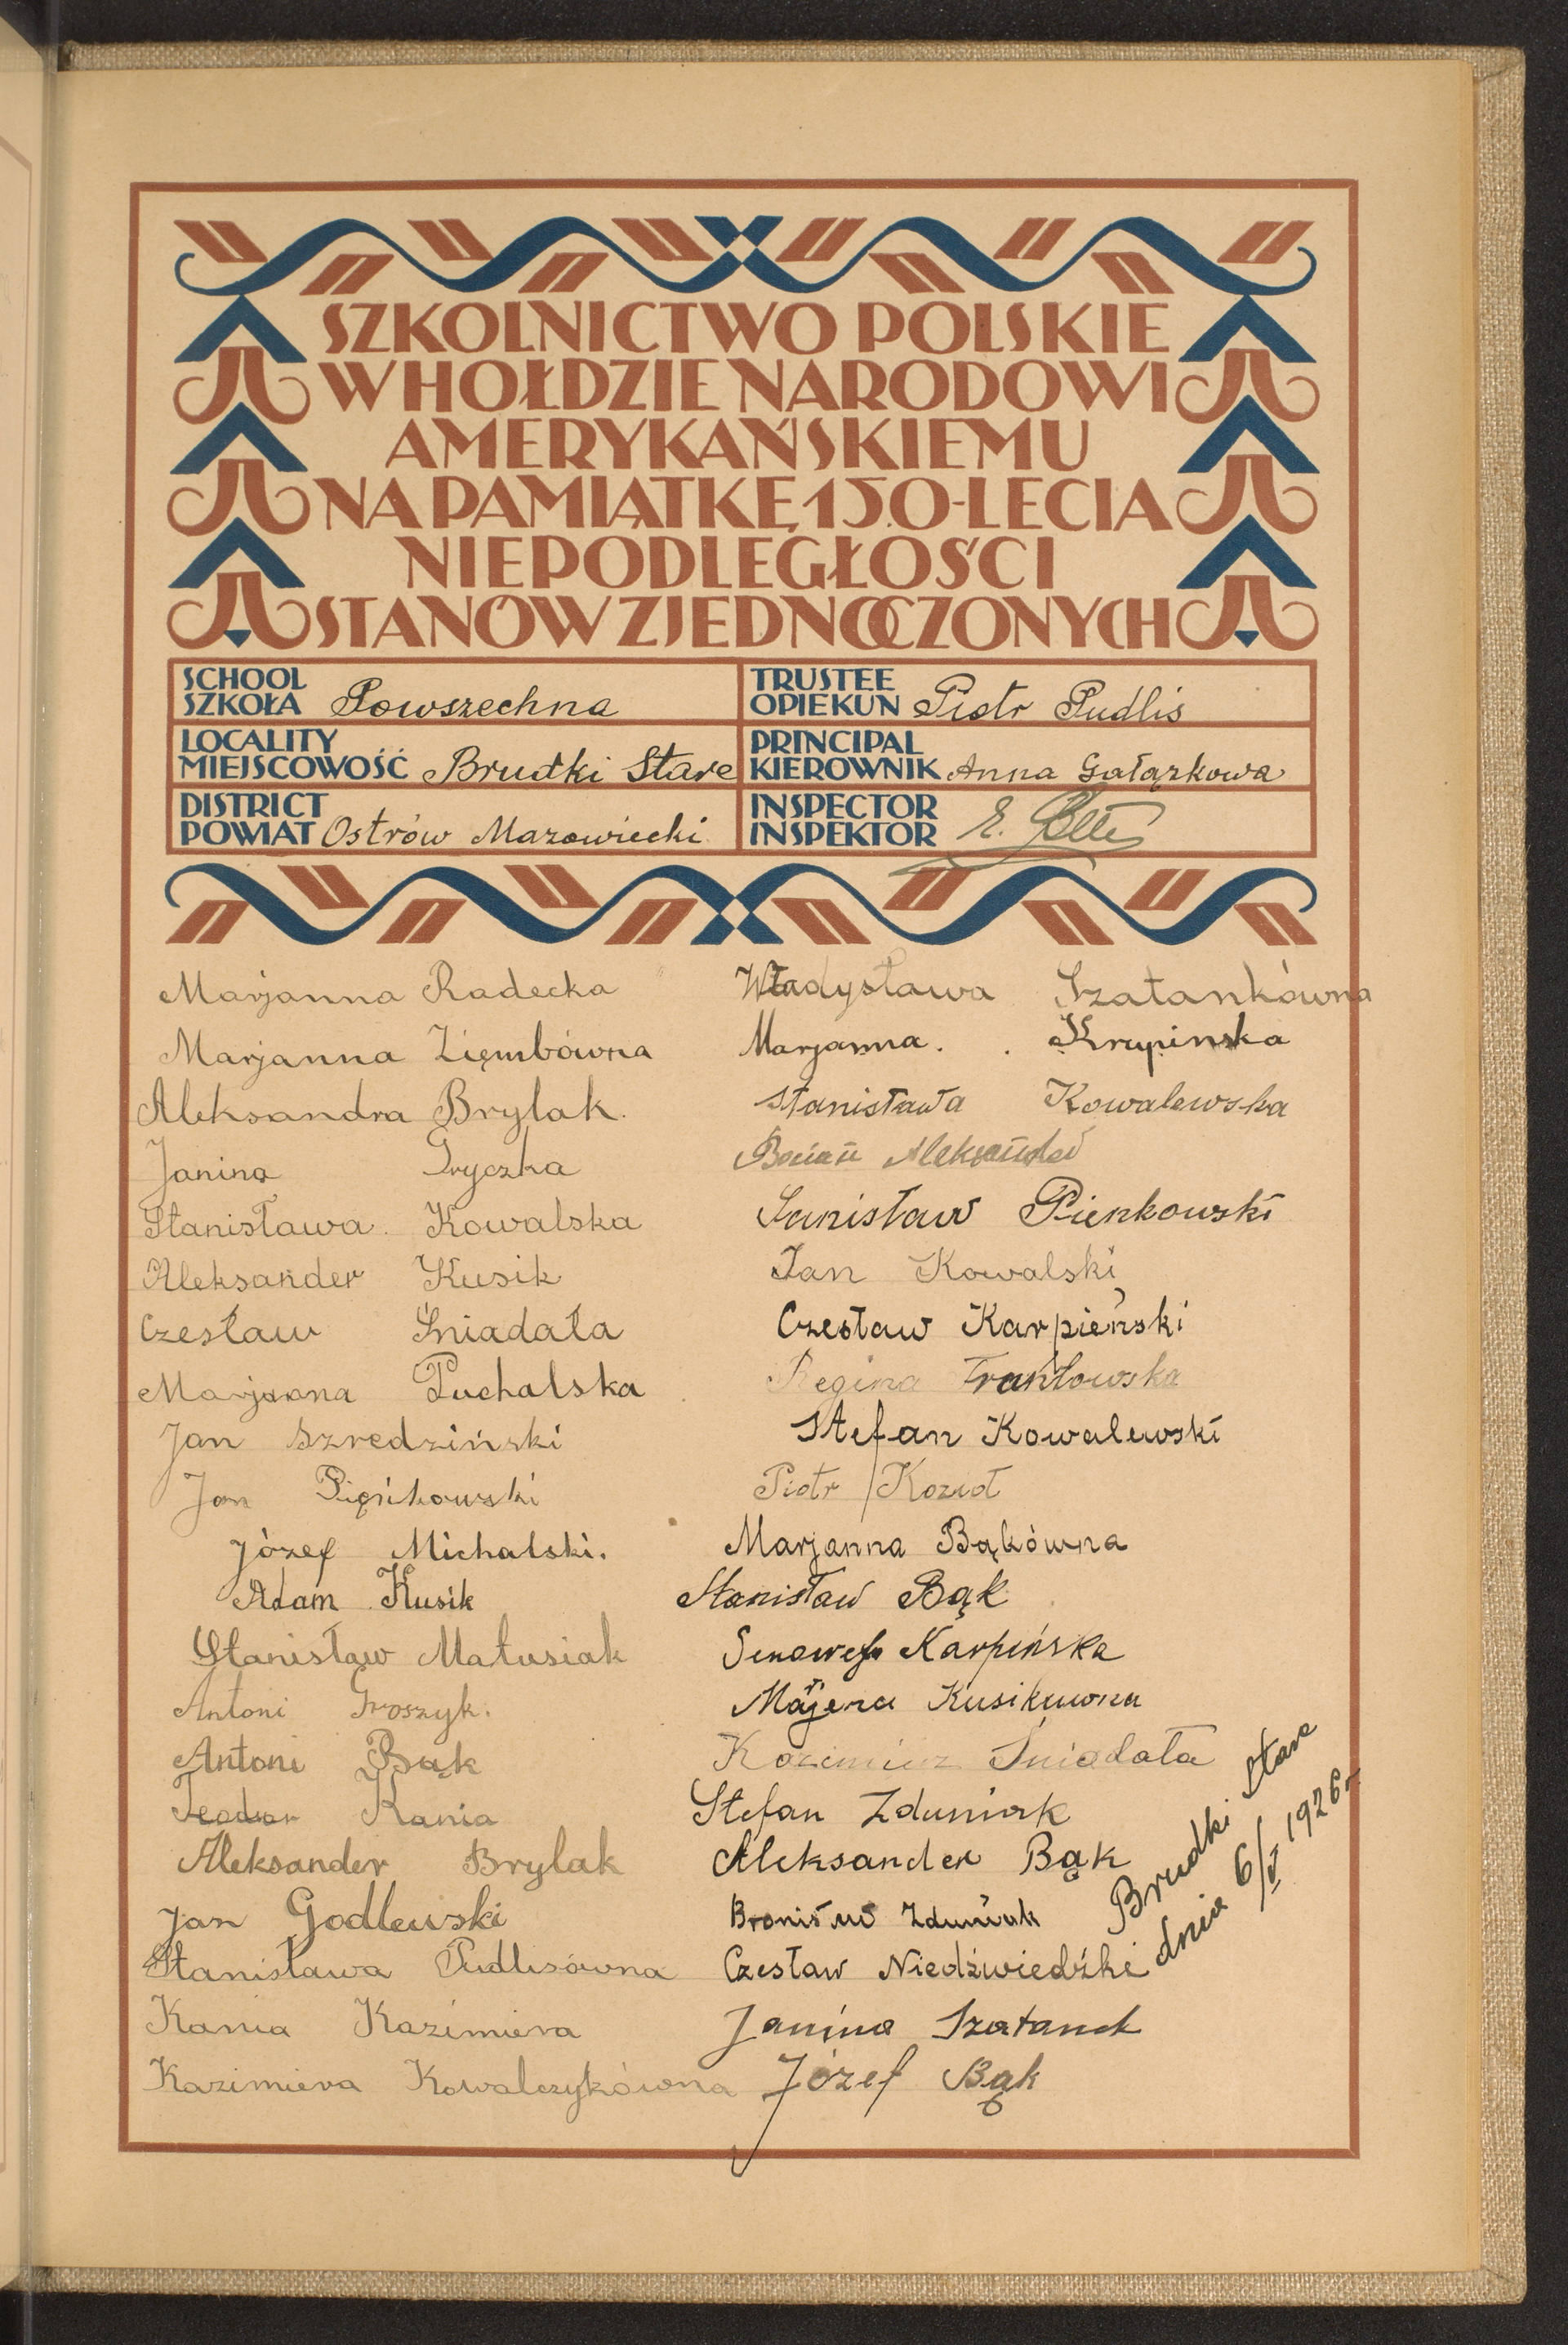 SZKOLNICTWO POLSKIE
W HOŁDZIE NARODOWI
AMERYKAŃSKIEMU
NA PAMIĄTKĘ 150-LECIA
NIEPODLEGŁOŚCI
STANÓW ZJEDNOCZONYCH
SCHOOL
SZKOŁA Powszechna
TRUSTEE
OPIEKUN Piotr Pudlis
LOCALITY
MIEJSCOWOŚĆ Brudki Stare
PRINCIPAL
KIEROWNIK Anna Gałązkowa
DISTRICT
POWIAT Ostrów Mazowiecki
INSPECTOR
INSPEKTOR E.
Marjanna Radecka
Marjanna Ziembówna
Aleksandra Brylak.
Janina Gryczka
Stanisława Kowalska
Aleksander Kusik
Czesław Śniadała
Marjanna Puchalska
Jan Szredziński
Jan Pięńkowski
Józef Michalski.
Adam Kusik
Stanisław Matusiak
Antoni Groszyk.
Antoni Bąk
Teodor Kania
Aleksander Brylak
Jan Godlewski
Stanisława Pudlisówna
Kania Kazimiera
Kazimiera Kowalczykówna
Władysława Szatankówna
Marjanna Krupinska
Stanisława Kowalewska
Bocian Aleksander
Sanisław Pienkowski
Jan Kowalski
Czesław Karpieński
Regina
Stefan Kowalewski
Piotr Kozioł
Marjanna Bąkówna
Stanisław Bąk
Genowefa Karpińska
Kusikuwna
Kazimierz Śniadała
Stefan Zduniak
Aleksander Bąk
Zduniak
Czesław Niedźwiedźki
Janina Szatanek
Józef Bąk
Brudki Stare
dnia 6/V 1926 r